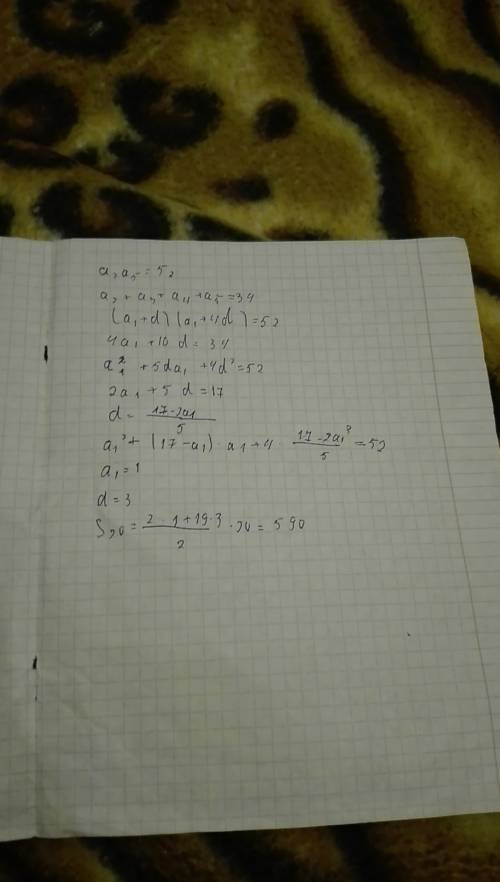 a₂a₅ = 52
a₂ + a₃ + a₄ + a₅ = 34
(a₁+d)(a₁+4d) = 52
4a₁ + 10d = 34
a₁² + 5da₁ + 4d² = 52
2a₁ + 5d = 17
d = (17-2a₁)/5
a₁² + (17-a₁)·a₁ + 4·(17-2a₁²)/5 = 52
a₁ = 1
d = 3
S₂₀ = (2·1+19·3)/2 · 20 = 590